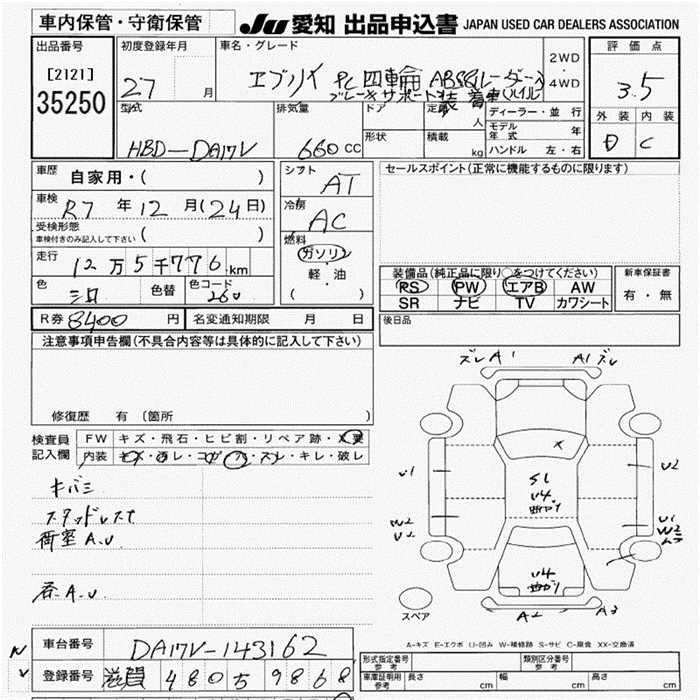 車内保管・守衛保管
JU 愛知 出品申込書 JAPAN USED CAR DEALERS ASSOCIATION
出品番号
[2121]
35250
初度登録年月
27 月
車名・グレード
エブリイ PC 四輪 ABS
ブレーキサポート 装着車
2WD
・
4WD
評価点
3.5
外装 内装
D C
型式
HBD-DA17V
排気量
660 CC
ドア
形状
定員 人
積載 kg
ディーラー・並行
モデル年式 年
ハンドル 左・右
車歴
自家用・( )
車検
R7 年 12 月(24日)
受検形態
車検付きのみ記入して下さい ( )
走行
12万5千776km
色 色替 色コード
26U
シフト
AT
冷房
AC
燃料
ガソリン
・
軽・油
( )
セールスポイント(正常に機能するものに限ります)
装備品(純正品に限り○をつけてください)
PS PW エアB AW
SR ナビ TV カワシート
新車保証書
有・無
R券 8400 円 名変通知期限 月 日
後日品
注意事項申告欄(不具合内容等は具体的に記入して下さい)
修復歴 有 (箇所 )
検査員
記入欄
FW キズ・飛石・ヒビ割・リペア跡・X要
内装 キズ・汚レ・コゲ・穴・スレ・キレ・破レ
キバミ
スタッドレス
荷室A.U
A.U
ズレ A1 A1 ズレ
U1 U2
X
SL
U4
W2
U2
U1
W2
U4
A2 A3
スペア
A-キズ E-エクボ U-凹み W-補修跡 S-サビ C-腐食 XX-交換済
車台番号
DA17V-143162
登録番号
滋賀 480 ち 9868
形式指定番号 参考
類別区分番号 参考
車庫証明用 参考 長さ cm 幅 cm 高さ cm